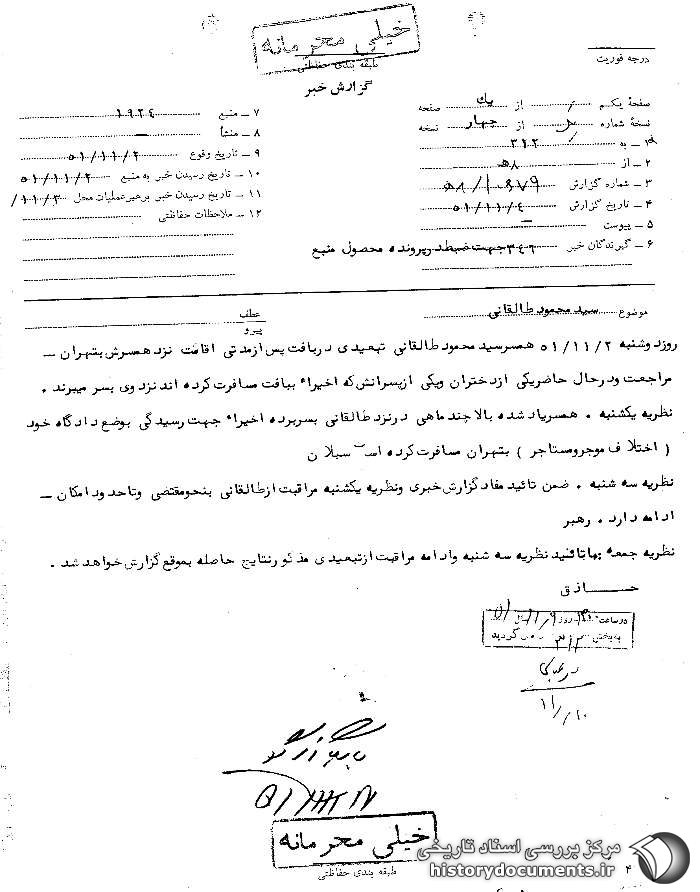 خیلی محرمانه
طبقه بندی حفاظتی
درجه فوریت
گزارش خبر
صفحه یکم از یك صفحه
نسخهٔ شماره از چهار نسخه
۱ـ به ۳۱۲
۲ـ از ۵۸
۳ـ شماره گزارش
۴ـ تاریخ گزارش ۵۱/۱۱/۴
۵ـ پیوست ـ
۶ـ گیرندگان خبر ۳۴۲ جهت ضبط در پرونده محصول منبع
۷ـ منبع ۱۹۲۴
۸ـ منشأ ـ
۹ـ تاریخ وقوع ۵۱/۱۱/۲
۱۰ـ تاریخ رسیدن خبر به منبع ۵۱/۱۱/۲
۱۱ـ تاریخ رسیدن خبر برهبر عملیات محل ۱۱/۳/
۱۲ـ ملاحظات حفاظتی
موضوع سید محمود طالقانی
عطف
پیرو
روز دوشنبه ۵۱/۱۱/۲ همسر سید محمود طالقانی تبعیدی دربافت پس از مدتی اقامت نزد همسرش بتهران ـ
مراجعت و در حال حاضر یکی از دختران ویکی از پسرانش که اخیراً ببافت مسافرت کرده اند نزد وی بسر میبرند .
نظریه یکشنبه . همسر یاد شده بالا چند ماهی در نزد طالقانی بسر برده اخیراً جهت رسیدگی بوضع دادگاه خود
( اختلاف موجر و مستاجر ) بتهران مسافرت کرده است سبلان
نظریه سه شنبه . ضمن تائید مفاد گزارش خبری ونظریه یکشنبه مراقبت از طالقانی بنحو مقتضی وتا حدود امکان ـ
ادامه دارد . رهبر
نظریه جمعه بها تائید نظریه سه شنبه وادامه مراقبت از تبعیدی مذکور نتایج حاصله بموقع گزارش خواهد شد .
حاذق
در ساعت روز
به بخش ۳۱۲ گردید
۱۱/۱۰
بایگانی گردد
خیلی محرمانه
طبقه بندی حفاظتی
مرکز بررسی اسناد تاریخی
historydocuments.ir
۴